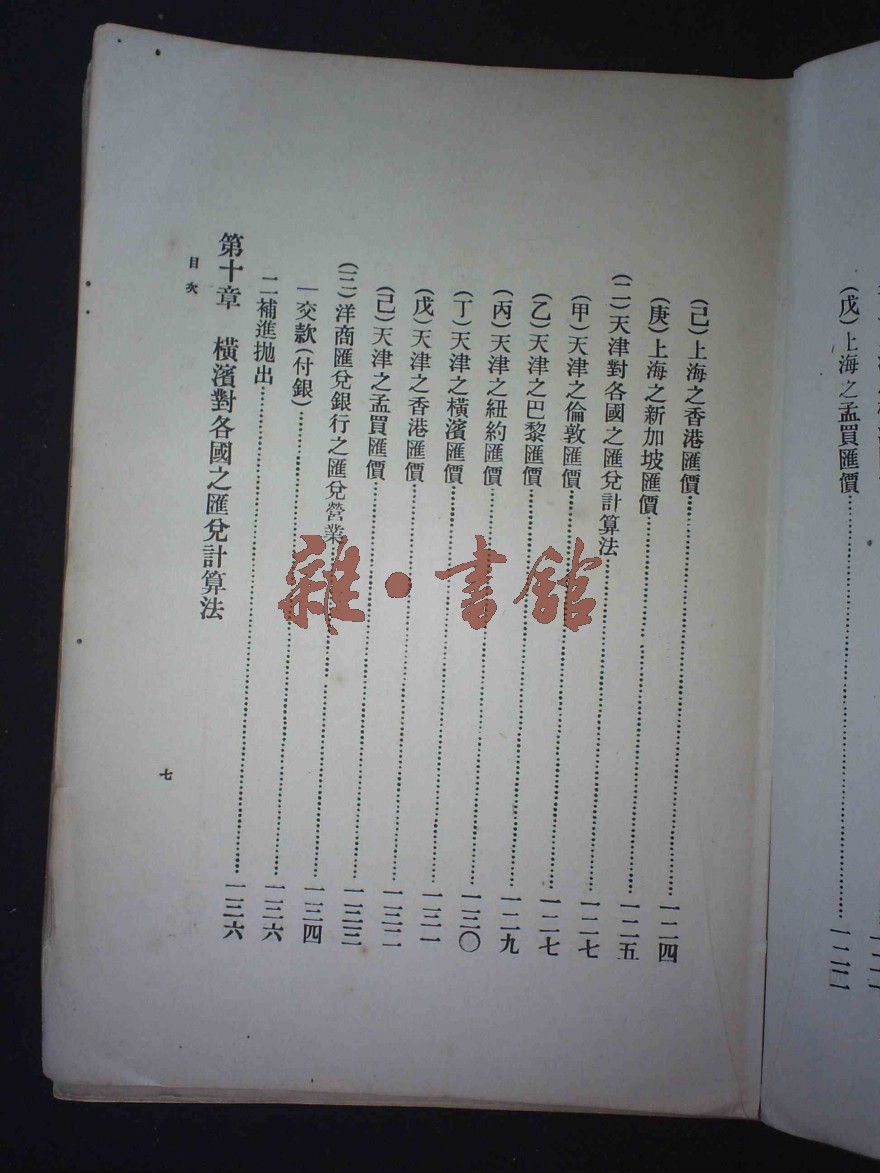 (戊)上海之孟買匯價……
(己)上海之香港匯價……一二四
(庚)上海之新加坡匯價……一二五
(二)天津對各國之匯兌計算法……一二七
(甲)天津之倫敦匯價……一二七
(乙)天津之巴黎匯價……一二九
(丙)天津之紐約匯價……一三〇
(丁)天津之橫濱匯價……一三一
(戊)天津之香港匯價……一三二
(己)天津之孟買匯價……一三三
(三)洋商匯兌銀行之匯兌營業……一三四
一交款(付銀)……一三六
二補進拋出……一三六
第十章 橫濱對各國之匯兌計算法
目次
七
雜·書館